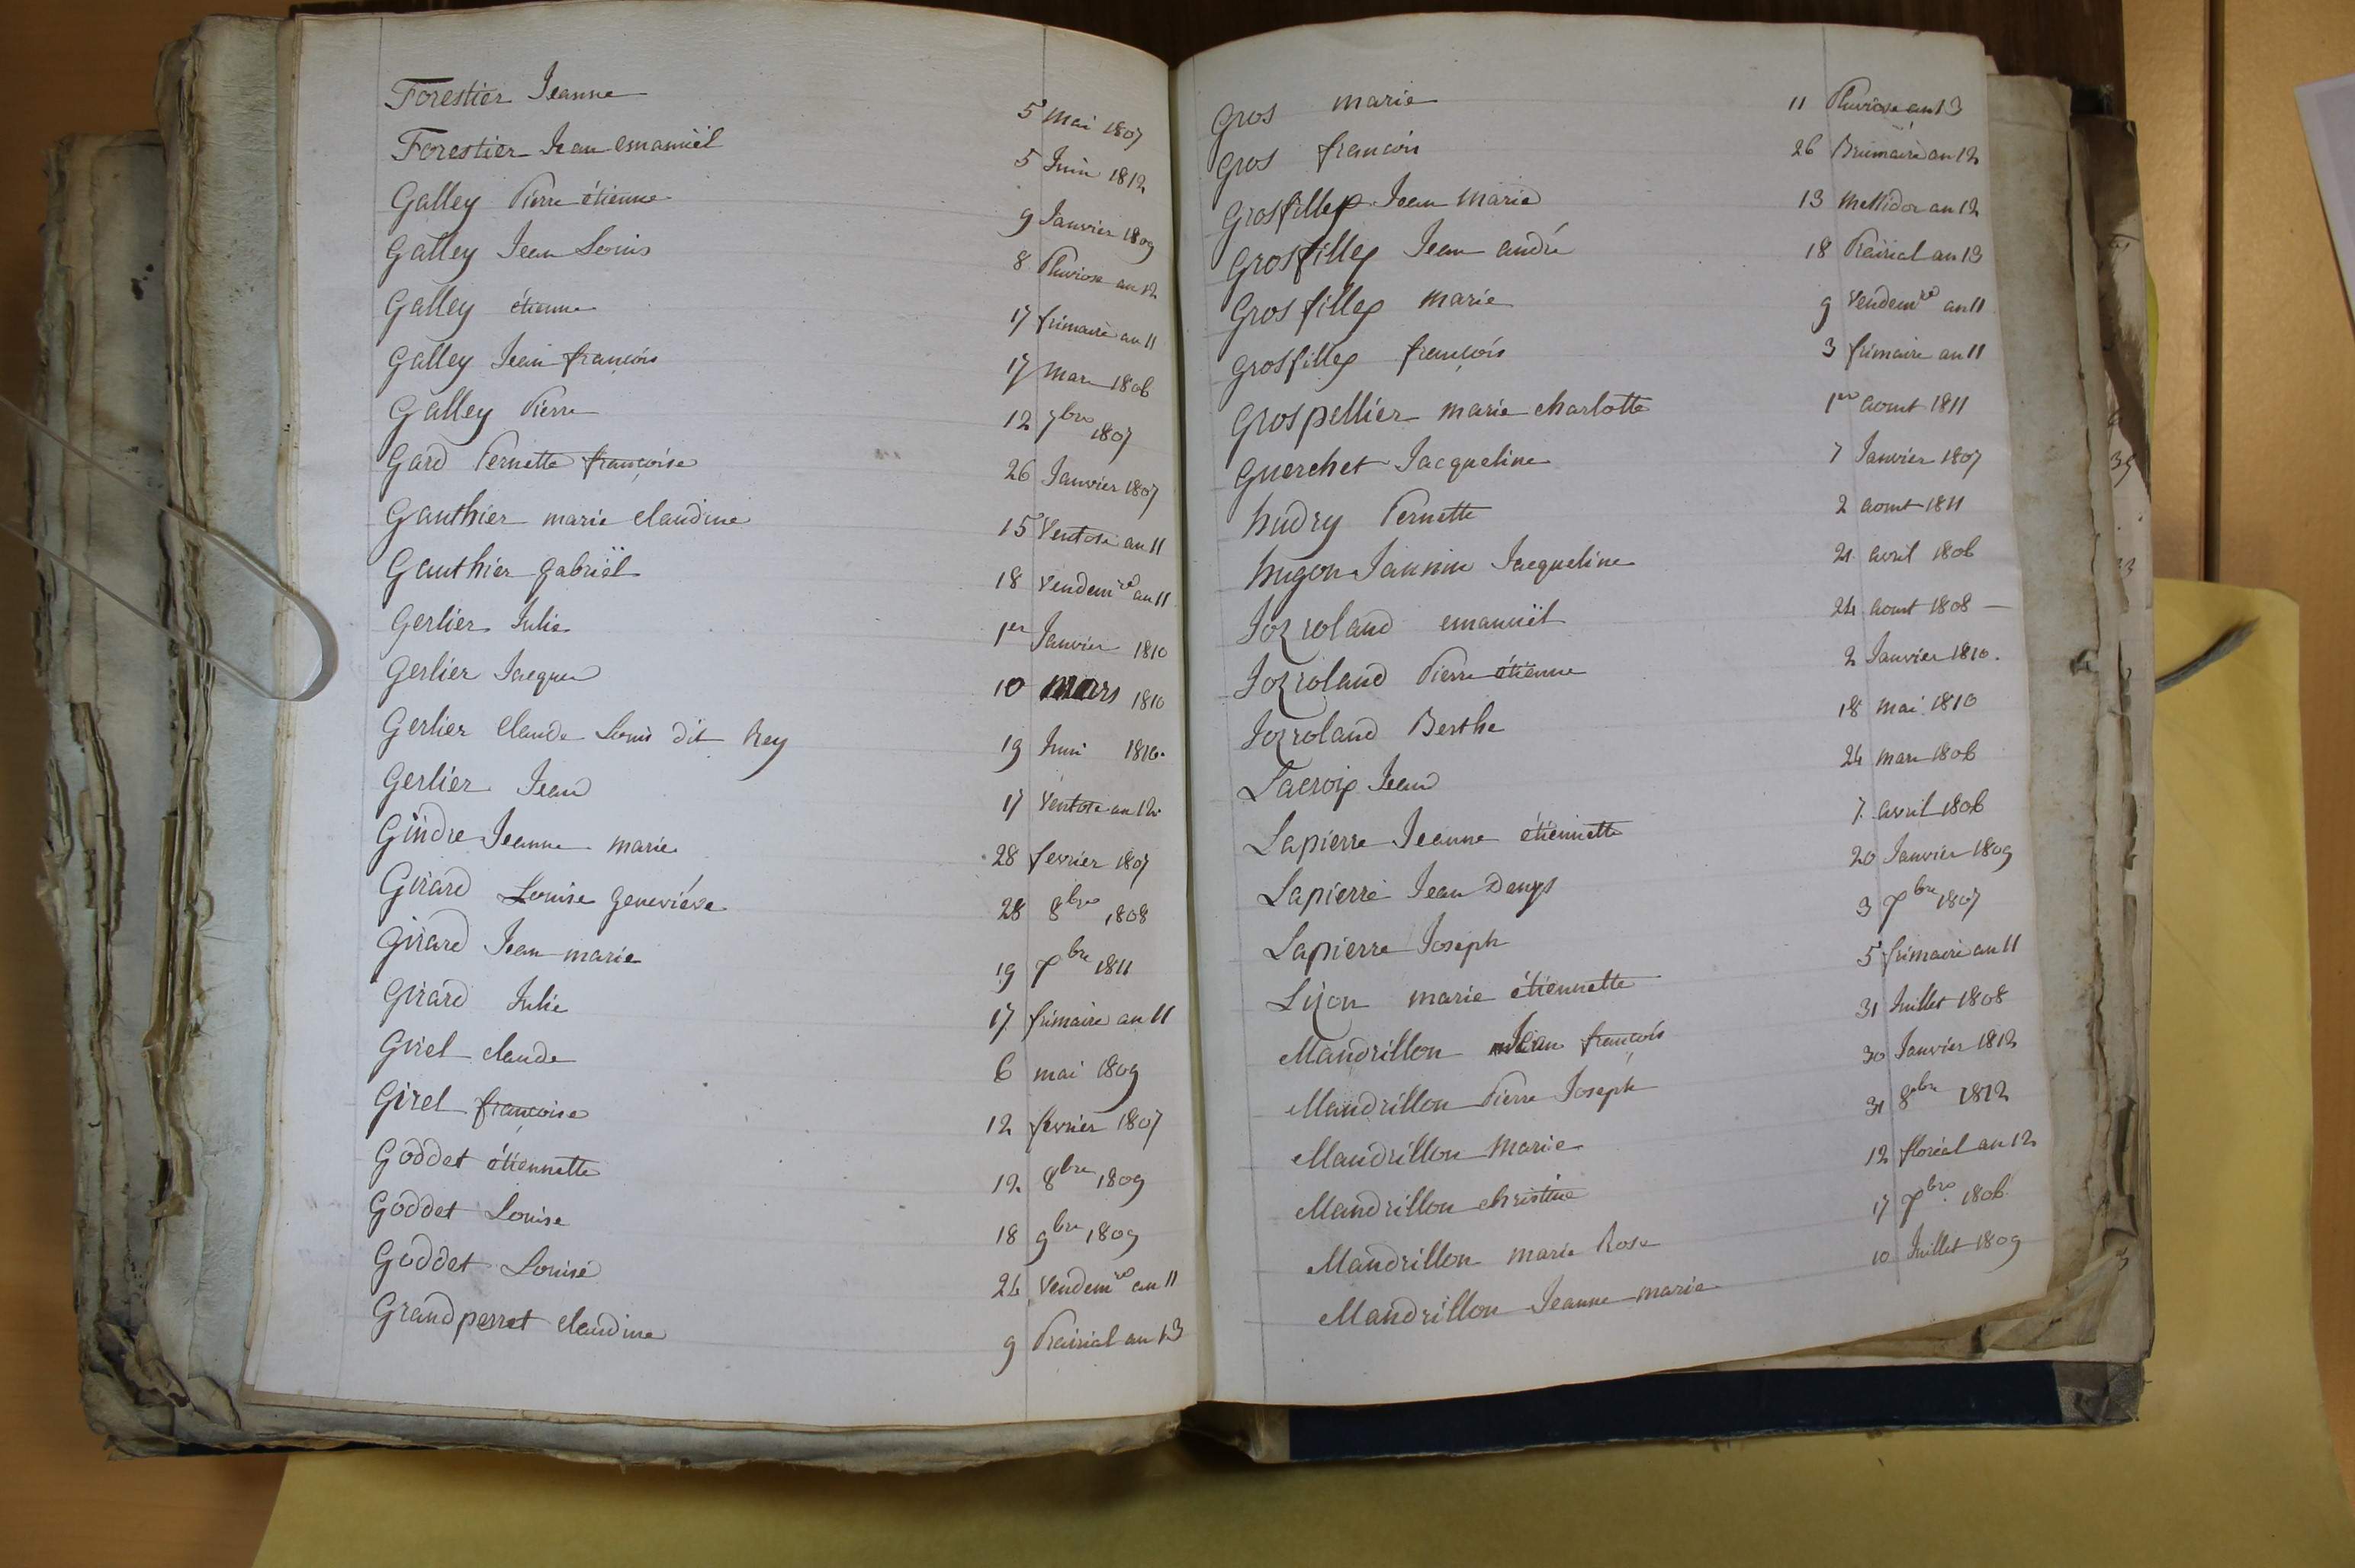 Forestier Jeanne 5 Mai 1807
Forestier Jean emanuël 5 Juin 1812
Galley Pierre étienne 9 Janvier 1809
Galley Jean Louis 8 Pluviose an 12
Galley étienne 17 frimaire an 11
Galley Jean françois 17 Mars 1806
Galley Pierre 12 7bre 1807
Gard Pernette françoise 26 Janvier 1807
Gauthier marie claudine 15 Ventose an 11
Gauthier Gabriël 18 Vendemre an 11
Gerlier Julie 1er Janvier 1810
Gerlier Jacques 10 mars 1810
Gerlier Claude Louis dit Rey 19 Juin 1810.
Gerlier Jean 17 Ventose an 12
Gindre Jeanne marie 28 fevrier 1807
Girard Louise Geneviéve 28 8bre 1808
Girard Jean marie 19 7bre 1811
Girard Julie 17 frimaire an 11
Girel claude 6 mai 1809
Girel françoise 12 fevrier 1807
Goddet étiennette 12 8bre 1809
Goddet Louise 18 9bre 1809
Goddet Louise 24 Vendemre an 11
Grandperret claudine 9 Prairial an 13
Gros marie 11 Pluviose an 13
Gros françois 26 Brumaire an 12
Grosfillex Jean Marie 13 Messidor an 12
Grosfillex Jean andré 18 Prairial an 13
Grosfillex marie 9 Vendemre an 11
Grosfillex françois 3 frimaire an 11
Grospellier marie charlotte 1er aout 1811
Guerchet Jacqueline 7 Janvier 1807
hudry Pernette 2 aout 1811
hugon Jannin Jacqueline 21 avril 1806
Jozroland emanuël 24 aout 1808
Jozroland Pierre étienne 2 Janvier 1810.
Jozroland Berthe 18 mai 1810
Lacroix Jean 24 mars 1806
Lapierre Jeanne étiennette 7 avril 1806
Lapierre Jean Denys 20 Janvier 1809
Lapierre Joseph 3 7bre 1807
Lizon marie étiennette 5 frimaire an 11
Mandrillon Jean françois 31 Juillet 1808
Mandrillon Pierre Joseph 30 Janvier 1812
Mandrillon Marie 31 8bre 1812
Mandrillon christine 12 floréal an 12
Mandrillon marie Rose 17 7bre 1806
Mandrillon Jeanne marie 10 Juillet 1809